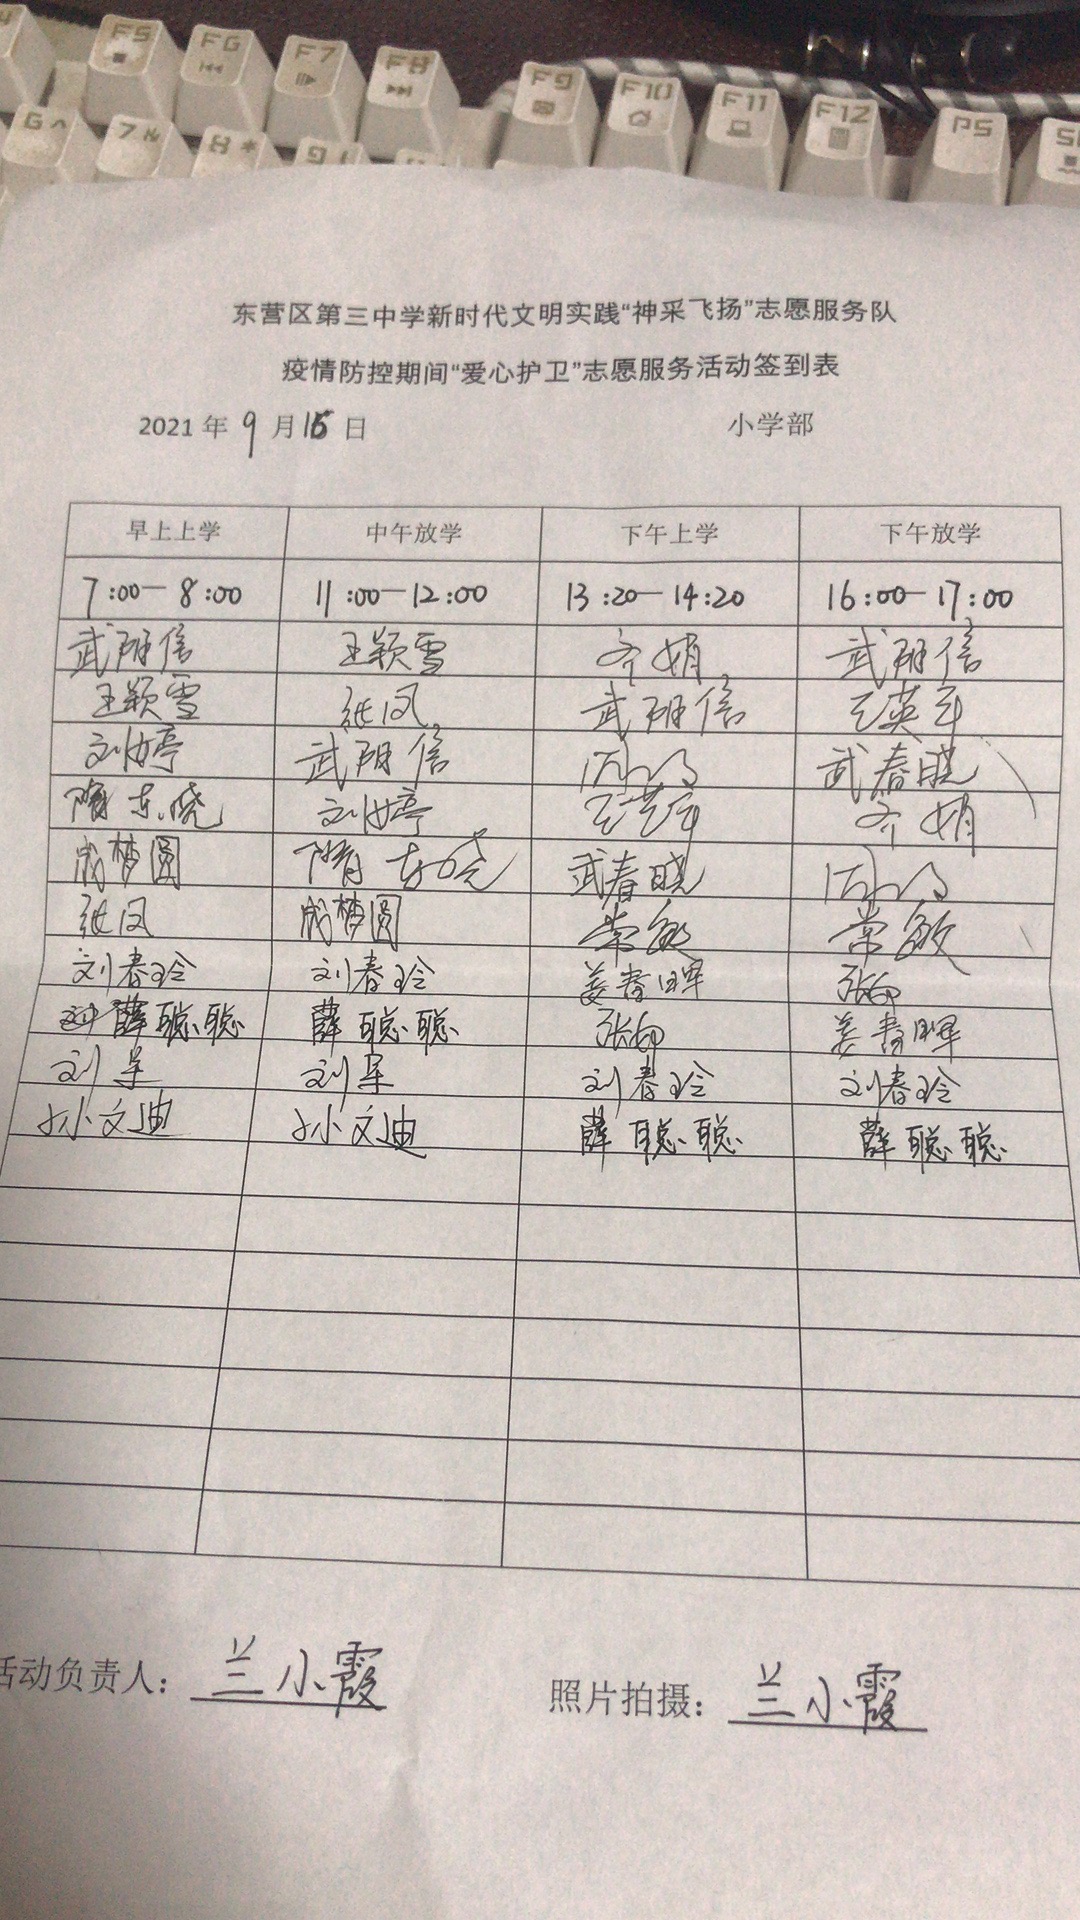 F5
F6
F7
F8
F9
F10
F11
F12
PS
G ^
7
8 *
9 (
东营区第三中学新时代文明实践“神采飞扬”志愿服务队
疫情防控期间“爱心护卫”志愿服务活动签到表
2021 年 9 月 15 日 小学部
早上上学 中午放学 下午上学 下午放学
7:00—8:00 11:00—12:00 13:20—14:20 16:00—17:00
武朋信 王颖雪 齐娟 武朋信
王颖雪 张凤 武朋信 王英军
刘女亭 武朋信 武春晓
隋东晓 刘女亭 王英军 齐娟
成梦圆 隋东晓 武春晓
张凤 成梦圆 常敏 常敏
刘春玲 刘春玲 姜春晖
薛聪聪 薛聪聪 姜春晖
刘 刘 刘春玲 刘春玲
孙文迪 孙文迪 薛聪聪 薛聪聪
活动负责人：兰小霞 照片拍摄：兰小霞